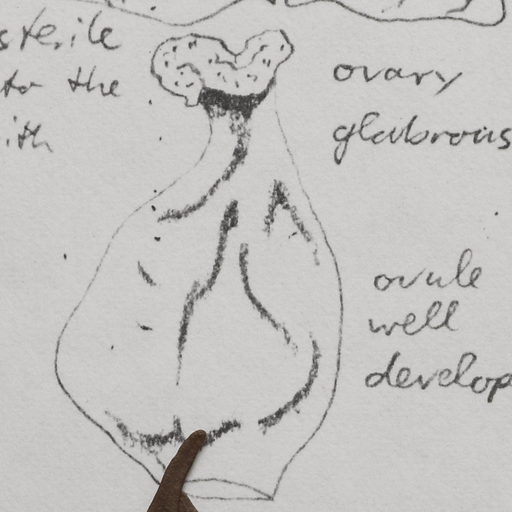 sterile
to the
ith
ovary
glabrous
ovule
well
develop